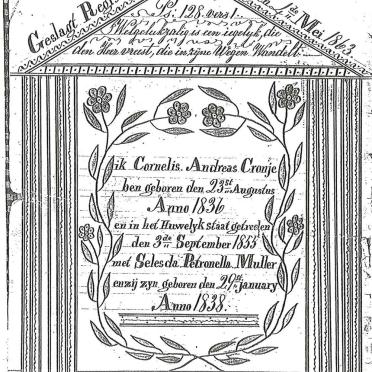 Geslagt Reg
1ste Mei 1863
Ps. 128 vers 1
Welgelukzalig is een iegelyk, die
den Heer vreest, die in zyne Wegen Wandelt
ik Cornelis. Andreas Cronje
ben geboren den 23st Augustus
Anno 1836
en in het Huwelyk staat getreden
den 3de September 1855
met Selesda. Petronella. Muller
en zy zyn geboren den 29st January
Anno 1838.